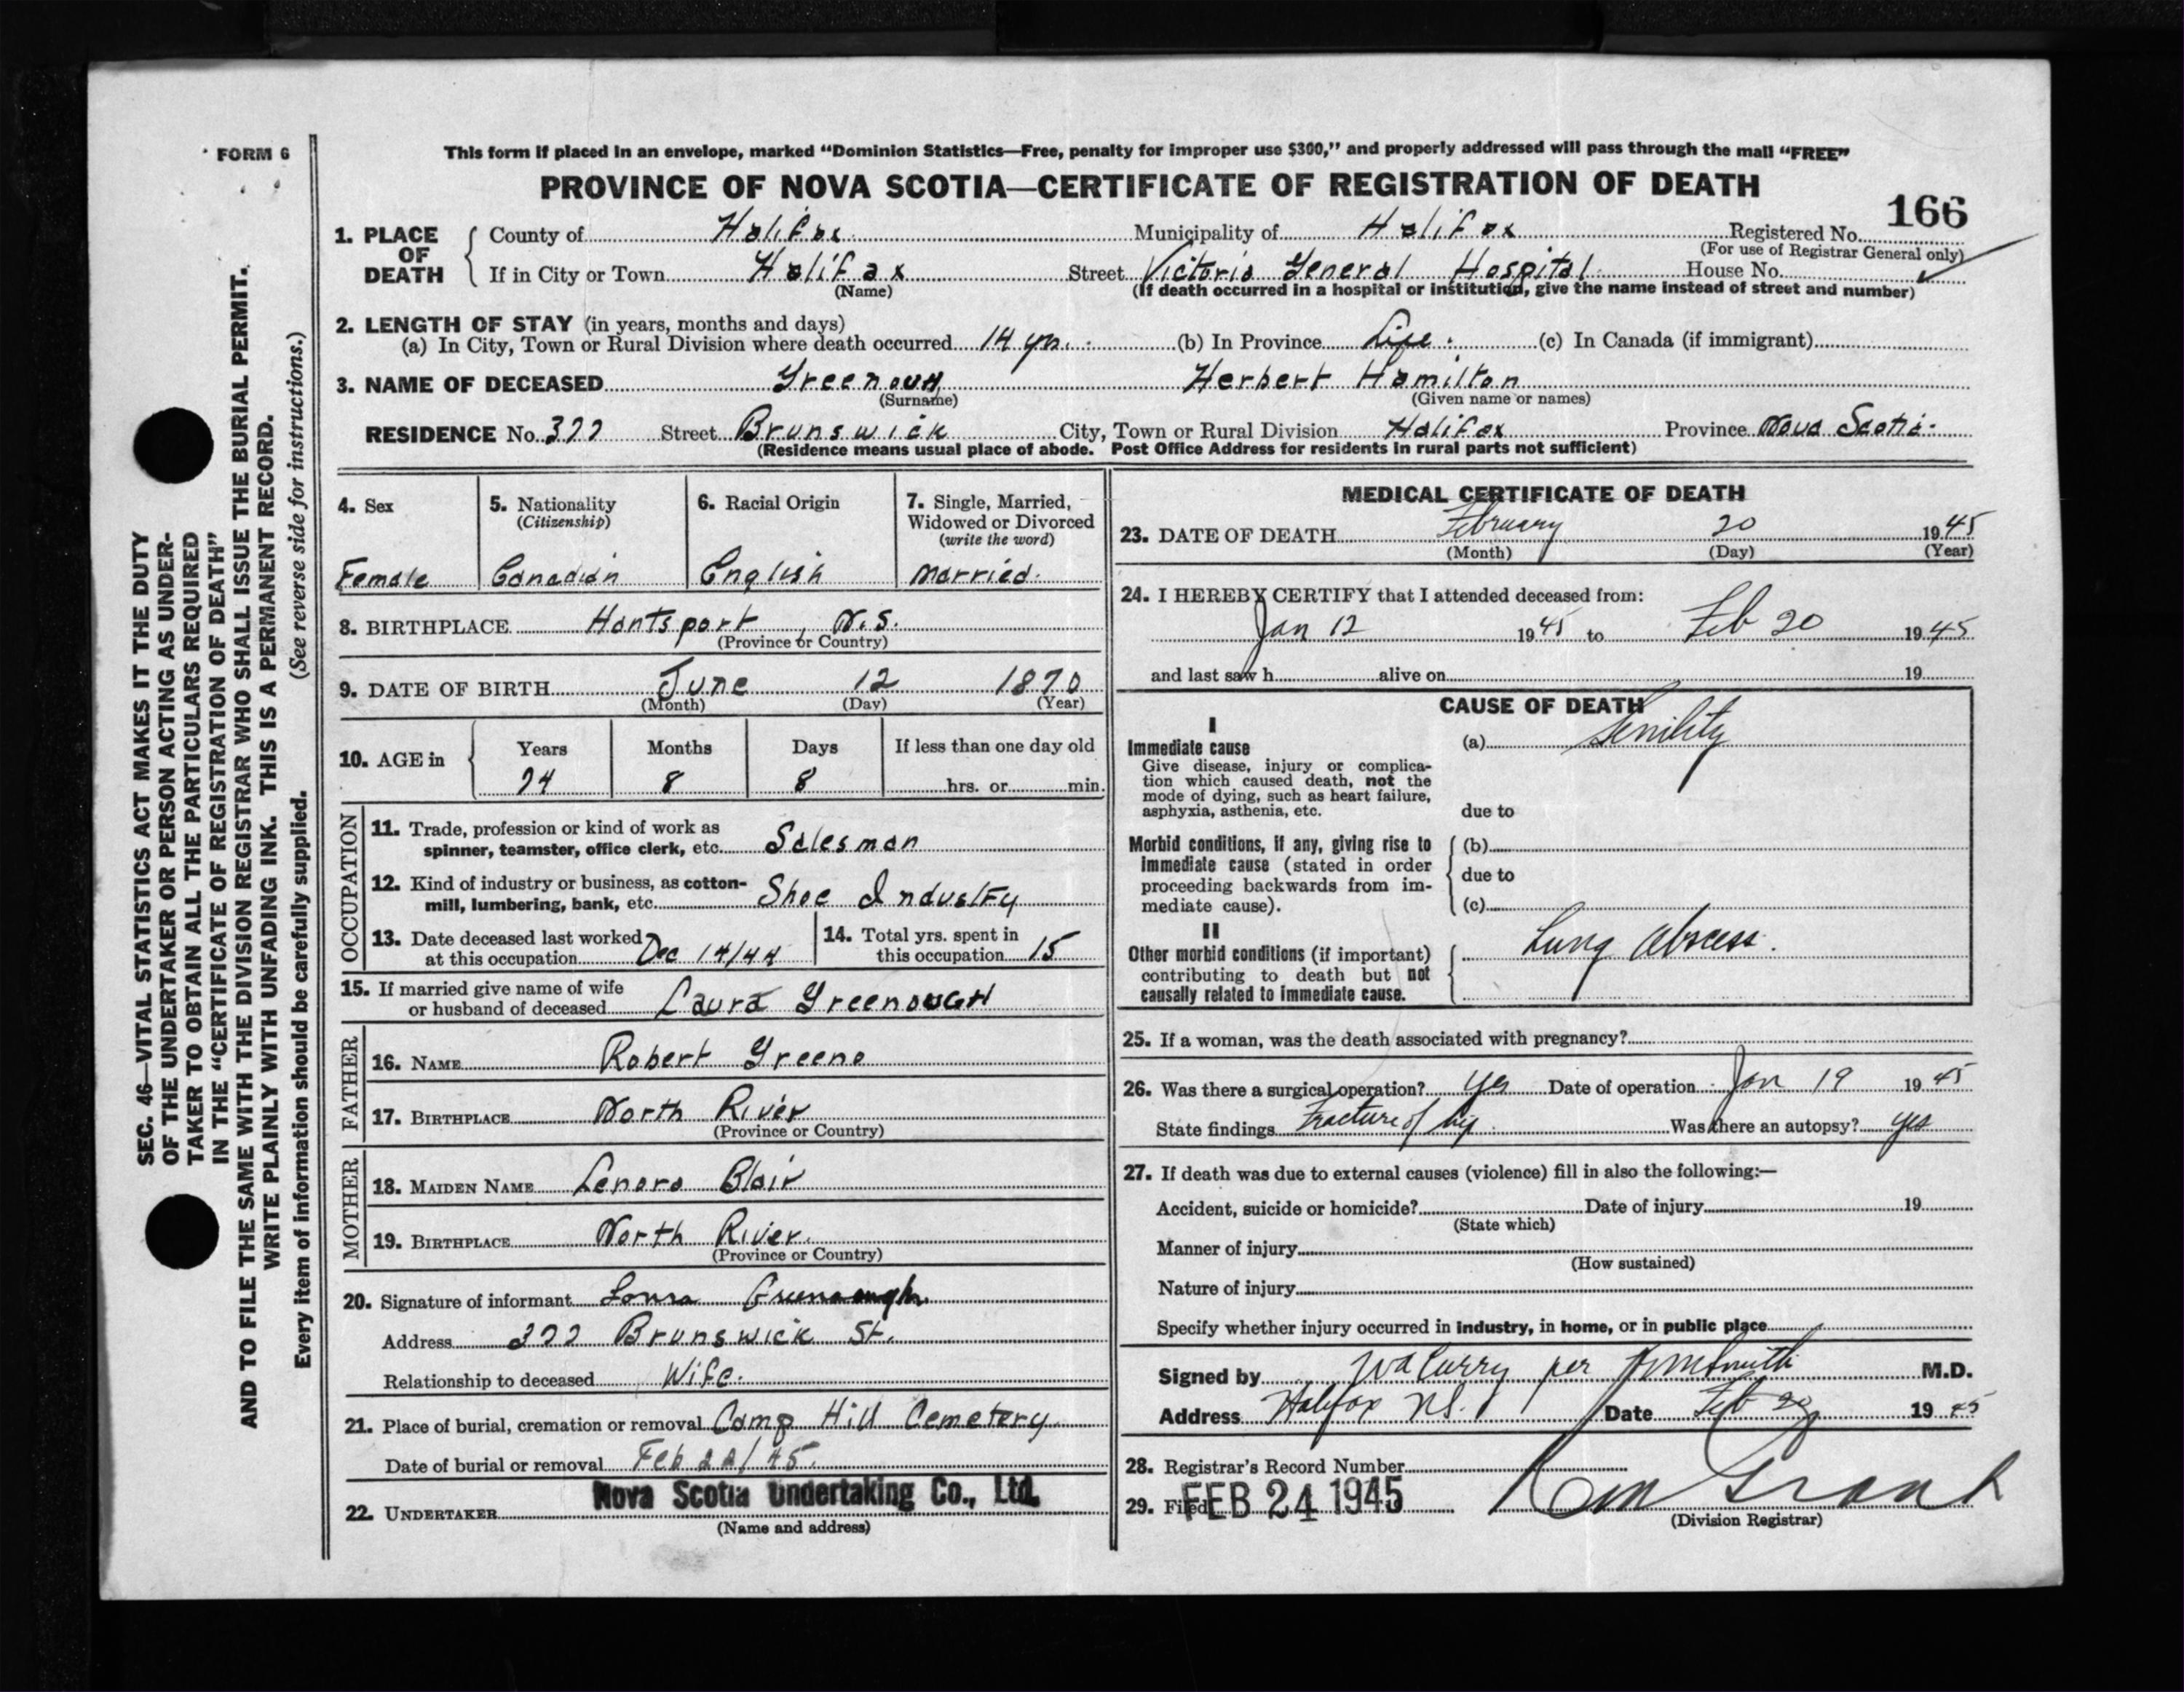 FORM 6
SEC. 46—VITAL STATISTICS ACT MAKES IT THE DUTY
OF THE UNDERTAKER OR PERSON ACTING AS UNDER-
TAKER TO OBTAIN ALL THE PARTICULARS REQUIRED
IN THE "CERTIFICATE OF REGISTRATION OF DEATH"
AND TO FILE THE SAME WITH THE DIVISION REGISTRAR WHO SHALL ISSUE THE BURIAL PERMIT.
WRITE PLAINLY WITH UNFADING INK. THIS IS A PERMANENT RECORD.
Every item of information should be carefully supplied. (See reverse side for instructions.)
This form if placed in an envelope, marked "Dominion Statistics—Free, penalty for improper use $300," and properly addressed will pass through the mail "FREE"
PROVINCE OF NOVA SCOTIA—CERTIFICATE OF REGISTRATION OF DEATH
166
1. PLACE OF DEATH
County of Halifax Municipality of Halifax Registered No.
(For use of Registrar General only)
If in City or Town Halifax Street Victoria General Hospital House No.
(Name) (If death occurred in a hospital or institution, give the name instead of street and number)
2. LENGTH OF STAY (in years, months and days)
(a) In City, Town or Rural Division where death occurred 14 yrs. (b) In Province Life. (c) In Canada (if immigrant)
3. NAME OF DECEASED Greenough Herbert Hamilton
(Surname) (Given name or names)
RESIDENCE No. 322 Street Brunswick City, Town or Rural Division Halifax Province Nova Scotia.
(Residence means usual place of abode. Post Office Address for residents in rural parts not sufficient)
4. Sex
Female
5. Nationality
(Citizenship)
Canadian
6. Racial Origin
English
7. Single, Married,
Widowed or Divorced
(write the word)
Married.
8. BIRTHPLACE Hantsport, N.S.
(Province or Country)
9. DATE OF BIRTH June 12 1870
(Month) (Day) (Year)
10. AGE in
Years Months Days If less than one day old
74 8 8 hrs. or min.
OCCUPATION
11. Trade, profession or kind of work as
spinner, teamster, office clerk, etc. Salesman
12. Kind of industry or business, as cotton-
mill, lumbering, bank, etc. Shoe Industry
13. Date deceased last worked
at this occupation Dec 14/44
14. Total yrs. spent in
this occupation 15
15. If married give name of wife
or husband of deceased Laura Greenough
FATHER
16. NAME Robert Greeno
17. BIRTHPLACE North River
(Province or Country)
MOTHER
18. MAIDEN NAME Lenora Blair
19. BIRTHPLACE North River.
(Province or Country)
20. Signature of informant Laura Greenough
Address 322 Brunswick St.
Relationship to deceased Wife.
21. Place of burial, cremation or removal Camp Hill Cemetery
Date of burial or removal Feb 22/45.
22. UNDERTAKER Nova Scotia Undertaking Co., Ltd.
(Name and address)
MEDICAL CERTIFICATE OF DEATH
23. DATE OF DEATH February 20 1945
(Month) (Day) (Year)
24. I HEREBY CERTIFY that I attended deceased from:
Jan 12 1945 to Feb 20 1945
and last saw h alive on 19
CAUSE OF DEATH
I
Immediate cause (a) Senility
Give disease, injury or complica-
tion which caused death, not the
mode of dying, such as heart failure,
asphyxia, asthenia, etc. due to
Morbid conditions, if any, giving rise to (b)
immediate cause (stated in order
proceeding backwards from im- due to
mediate cause). (c)
II
Other morbid conditions (if important) Lung Abscess.
contributing to death but not
causally related to immediate cause.
25. If a woman, was the death associated with pregnancy?
26. Was there a surgical operation? yes Date of operation Jan 19 1945
State findings Fracture of hip. Was there an autopsy? yes
27. If death was due to external causes (violence) fill in also the following:—
Accident, suicide or homicide? Date of injury 19
(State which)
Manner of injury
(How sustained)
Nature of injury
Specify whether injury occurred in industry, in home, or in public place
Signed by Curry per Smith M.D.
Address Halifax N.S. Date Feb 20 1945
28. Registrar's Record Number
29. Filed FEB 24 1945 Grant
(Division Registrar)